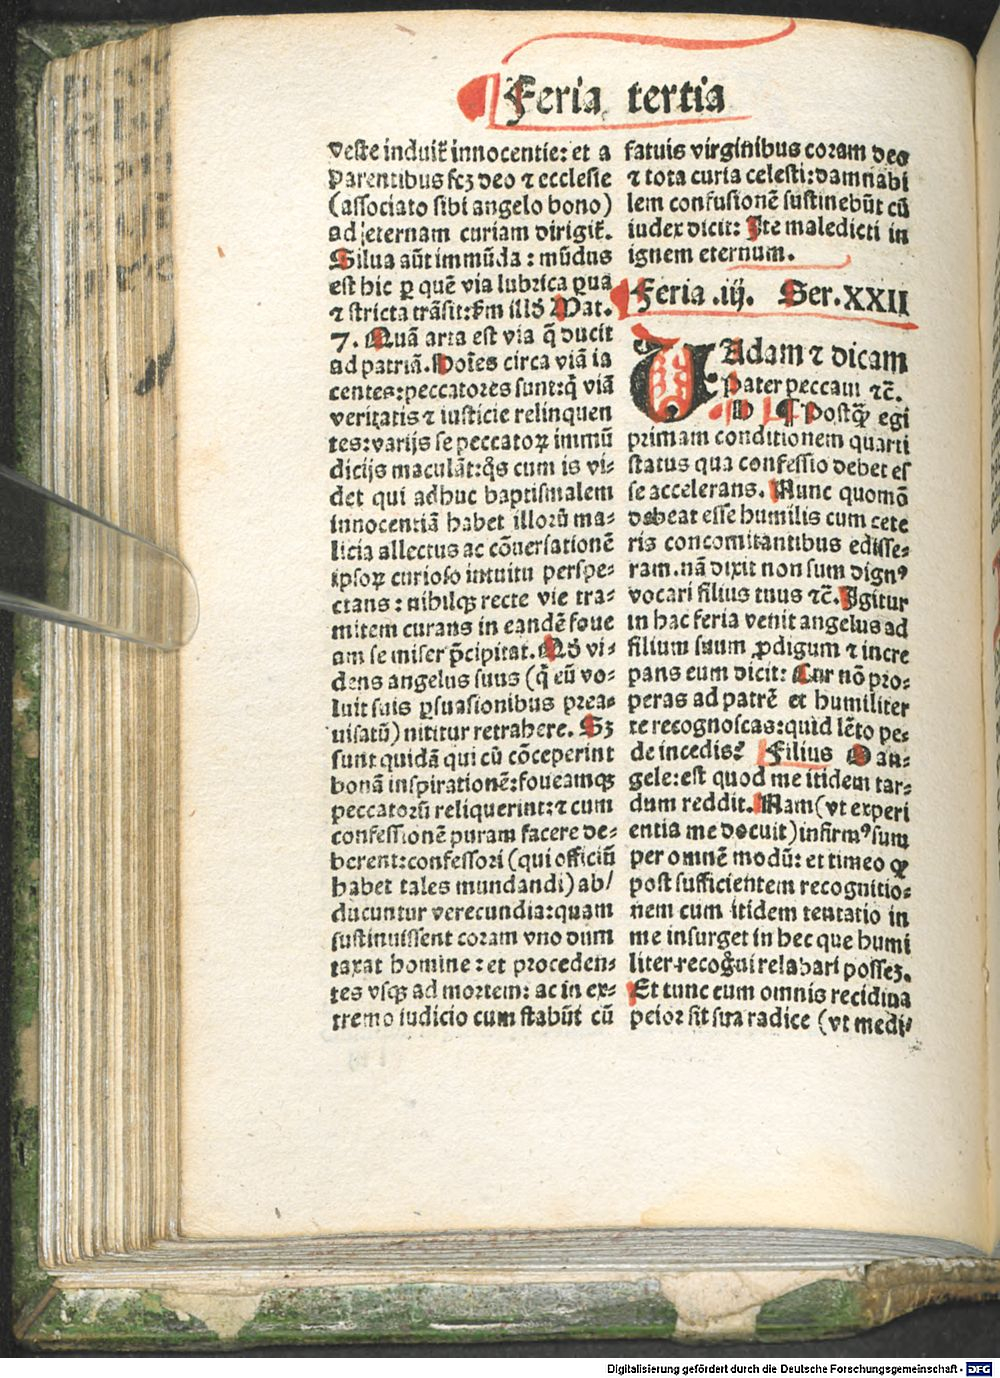 Feria tertia
veste induit᷑ innocentie: et a
parentibus scꝫ deo ⁊ ecclesie
(associato sibi angelo bono)
ad eternam curiam dirigit᷑.
Silua aūt immūda: mūdus
est hic ꝑ quē via lubrica ꝓua
⁊ stricta trāsit: ẜm illḋ Mat.
7. Quā arta est via q̄ ducit
ad patriā. Hoīes circa viā ia
centes: peccatores sunt: q̇ viā
veritatis ⁊ iusticie relinquen
tes: varijs se peccatoꝝ immū
dicijs maculāt: q̇s cum is vi⸗
det qui adhuc baptismalem
innocentiā habet illorū ma⸗
licia allectus ac cōuersationē
ipsoꝝ curioso intuitu perspe⸗
ctans: nihilqꝫ recte vie tra⸗
mitem curans in eandē foue
am se miser p̄cipitat. Qḋ vi⸗
dens angelus suus (q̇ eū vo⸗
luit suis ꝑsuasionibus prea⸗
uisatū) nititur retrahere. Sꝫ
sunt quidā qui cū cōceperint
bonā inspirationē: foueamqꝫ
peccatorū reliquerint: ⁊ cum
confessionē puram facere de⸗
berent: confessori (qui officiū
habet tales mundandi) ab/
ducuntur verecundia: quam
sustinuissent coram vno dum
taxat homine: et proceden⸗
tes vsqꝫ ad mortem: ac in ex⸗
tremo iudicio cum stabūt cū
fatuis virginibus coram deo
⁊ tota curia celesti: damnabi
lem confusionē sustinebūt cū
iudex dicit: Ite maledicti in
ignem eternum.
Feria .iij. Ser. XXII
VAdam ⁊ dicam
Pater peccaui ⁊c̄.
¶ Postq̄ꝫ egi
primam conditionem quarti
status qua confessio debet es
se accelerans. Nunc quomō
debeat esse humilis cum cete
ris concomitantibus edisse⸗
ram. nā dixit non sum dignꝰ
vocari filius tuus ⁊c̄. Igitur
in hac feria venit angelus ad
filium suum ꝓdigum ⁊ incre
pans eum dicit: Cur nō pro⸗
peras ad patrē et humiliter
te recognoscas: quid lēto pe⸗
de incedis? Filius O an⸗
gele: est quod me itidem tar⸗
dum reddit. Nam (vt experi
entia me docuit) infirmꝰ sum
per omnē modū: et timeo ꝙ
post sufficientem recognitio⸗
nem cum itidem tentatio in
me insurget in hec que humi
liter recog̊ui relabari possez.
Et tunc cum omnis recidiua
peior sit sua radice (vt medi⸗
Digitalisierung gefördert durch die Deutsche Forschungsgemeinschaft - DFG